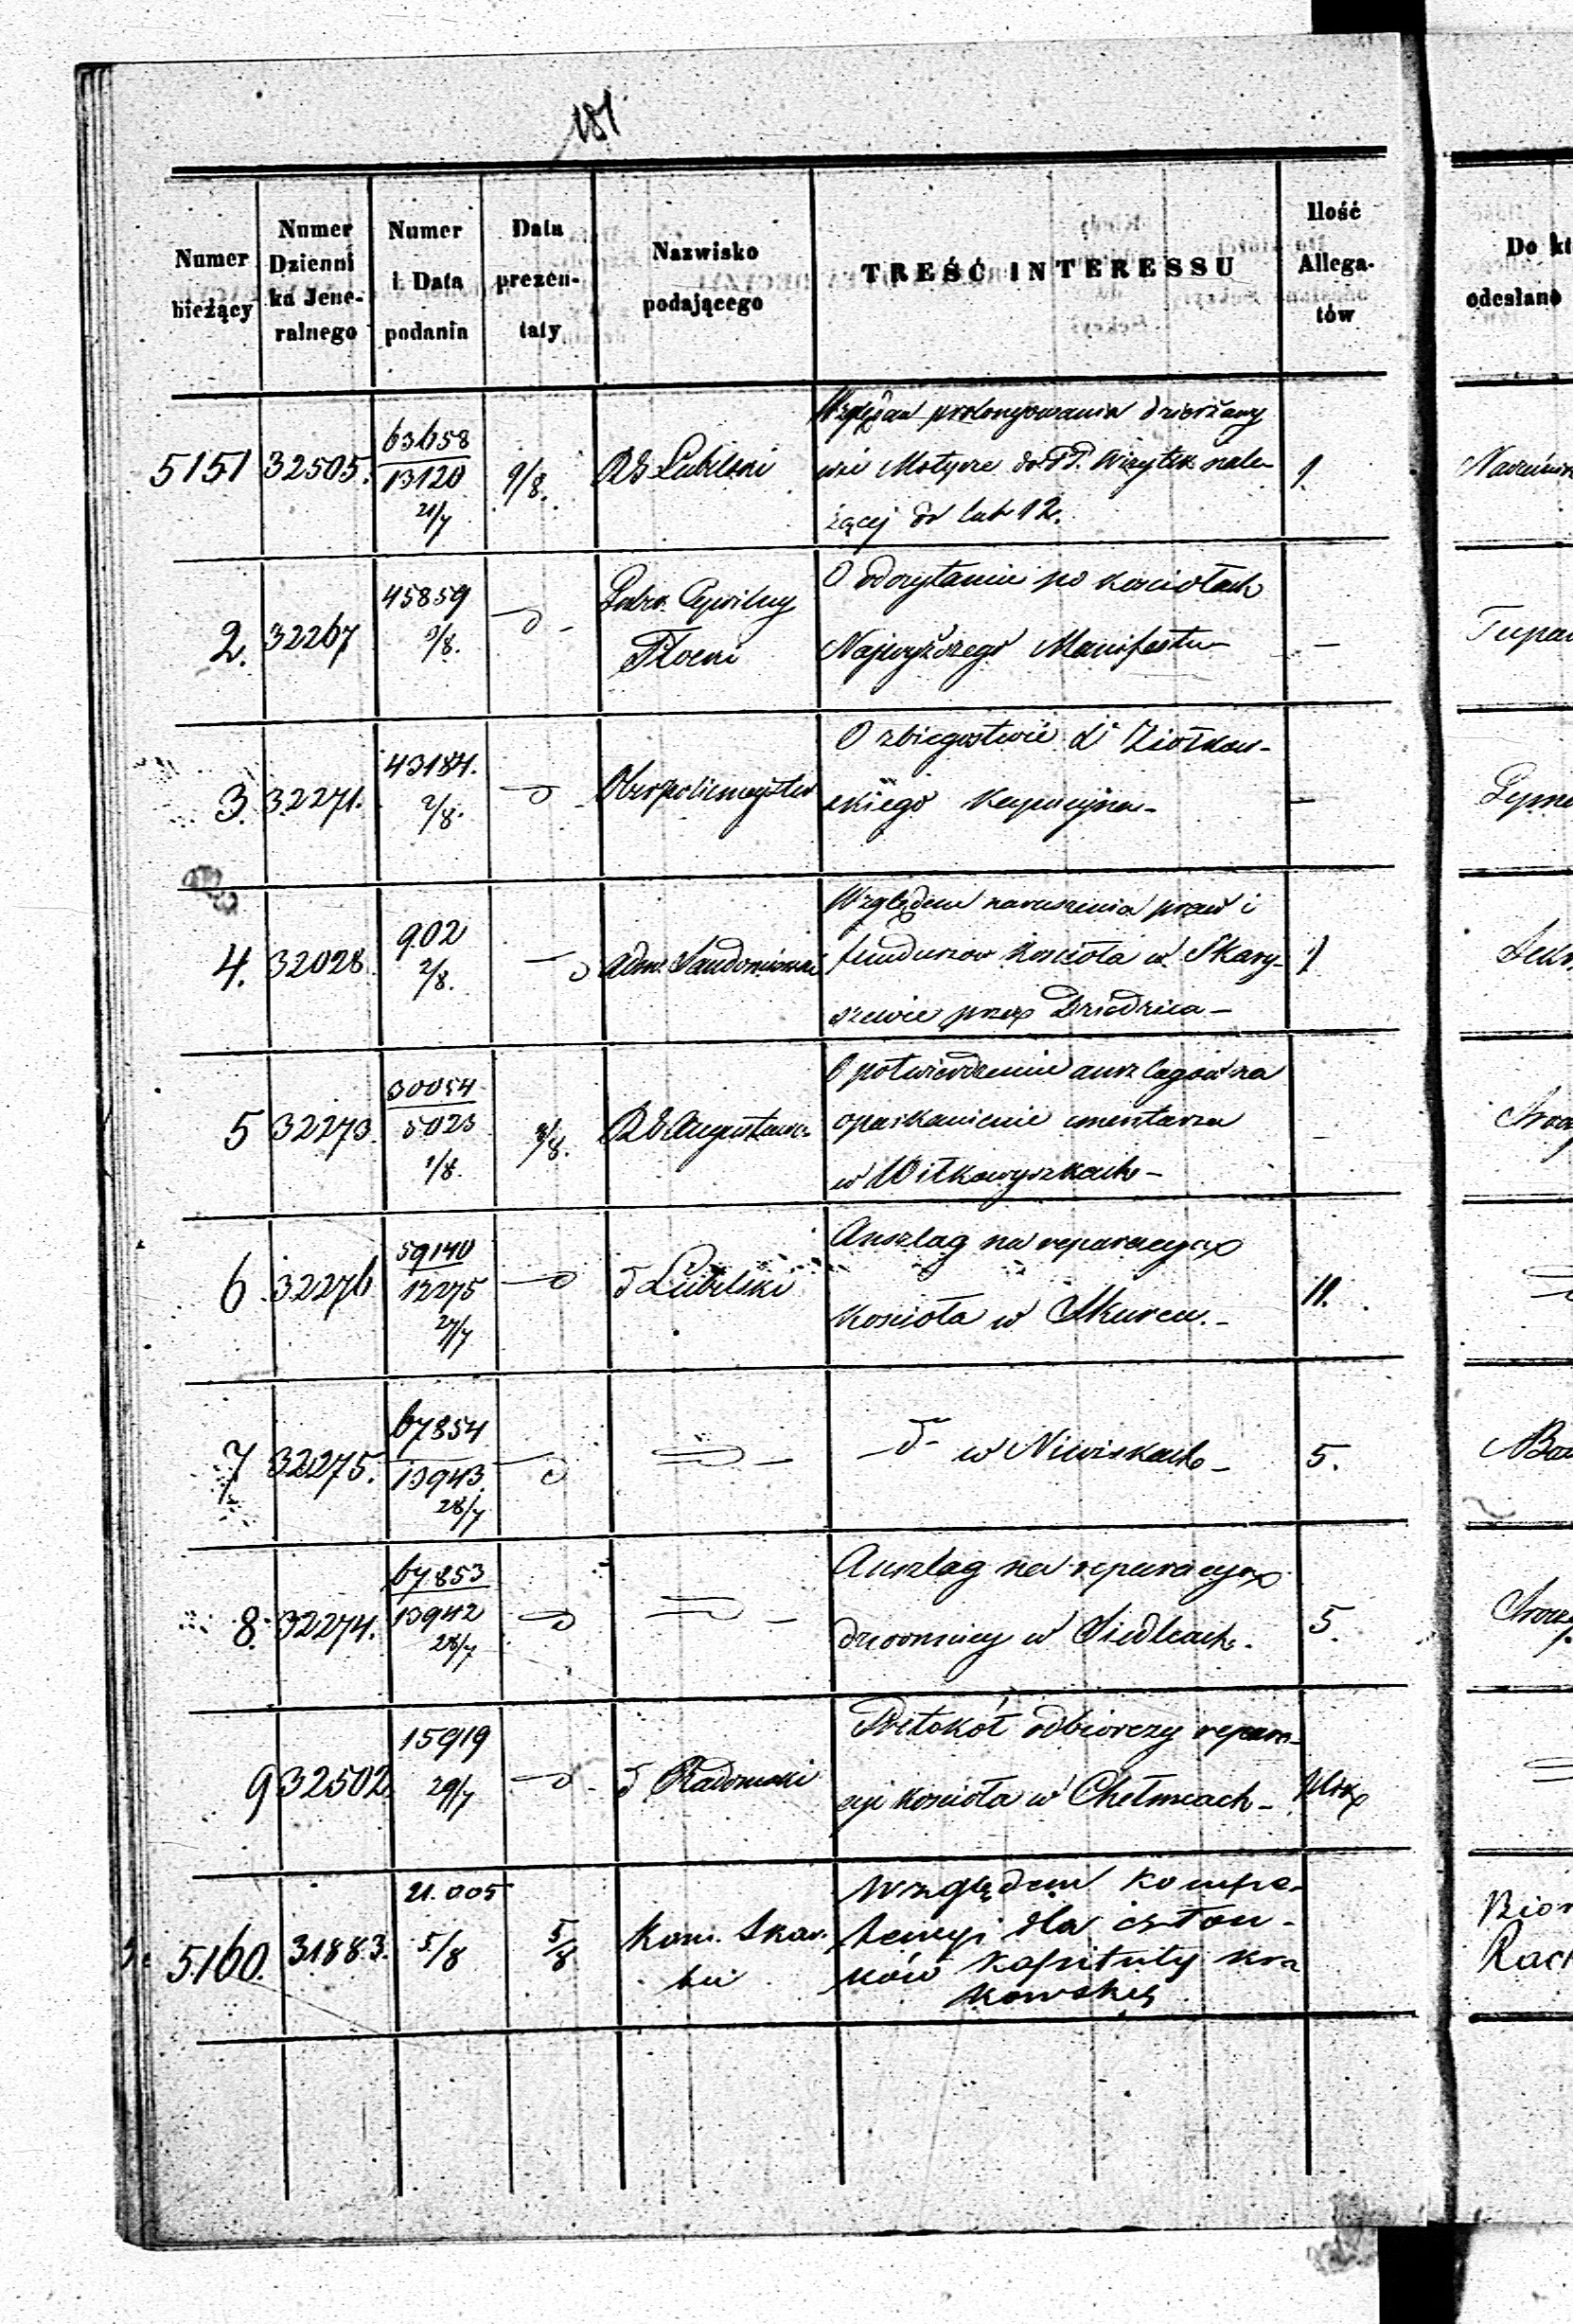 181
Numer bieżący
Numer Dzienni ka Jene- ralnego
Numer i Data podania
Data prezen- taty
Nazwisko podającego
TREŚĆ INTERESSU
Ilość Allega- tów
Do kt
odesłano
5151 32505. 63658 13120 21/7 9/8. RG Lubelski 1.
Względem prolongowania dzierżawy
wsi Motycze do PP. Wizytek nale-
żącej do lat 12.
2. 32267 45859 9/8. d- Gubr. Cywilny Płocki -
O odczytaniu po kościołach
Najwyższego Manifestu-
3. 32271. 43184. 2/8. d Oberpolicmajster -
O zbiegostwie X Ziołkow-
skiego Kapucyna-
4. 32028. 902 2/8. d adm. Sandomierski 1
Względem naruszenia praw i
funduszow Kościoła w Skary-
szewie przez Dziedzica-
5 32273. 30054 5023 1/8. 9/8. RG Augustow. -
O potwierdzenie anszlagów na
oparkanienie cmentarza
w Wiłkowyszkach-
6 32276 59140 12275 27/7 d d Lubelski 11.
Anszlag na reparacyą
Kościoła w Skurcu.-
7 32275. 67854 13943. 28/7 d 5.
-d- w Niwiskach-
8. 32274. 67853 13942 28/7 d 5.
Anszlag na reparacyą
dzwonnicy w Siedlcach.
9 32502 15919 29/7 d- d Radomski
Protokół odbiorczy repara-
cyi Kościoła w Chełmcach-
5160. 31883. 21.005 5/8 5/8 Kom. Skar. bu
Względem kompe-
tencyi dla człon-
ków Kapituły kra
kowskiej